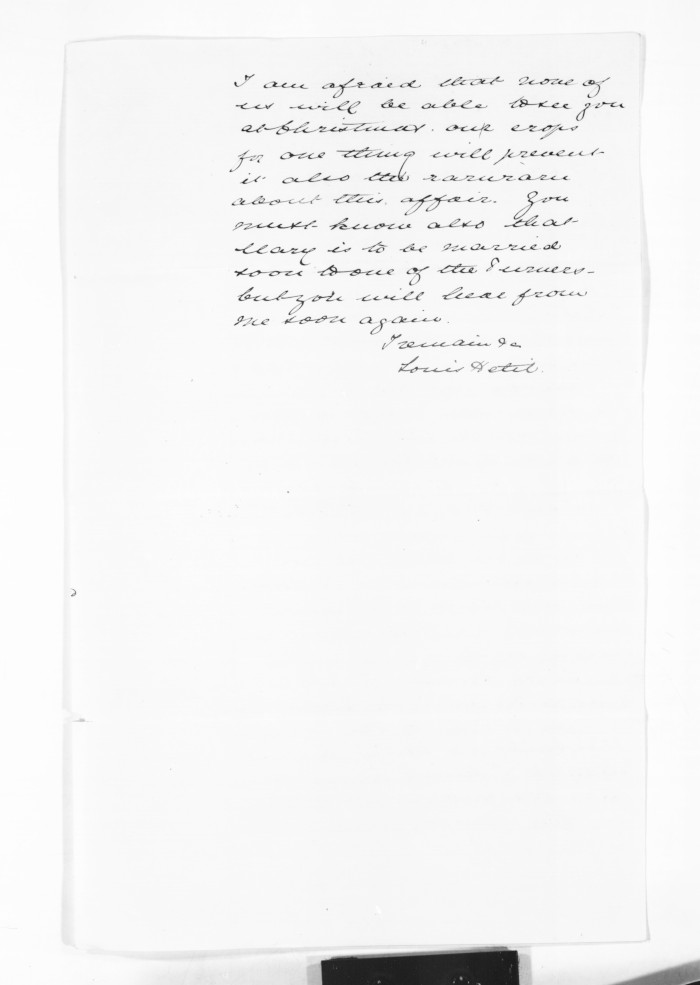 I am afraid that none of
us will be able to see you
at Christmas. our crops
for one thing will prevent
it also the raruraru
about this affair. You
must know also that
Mary is to be married
soon to one of the Turners-
but you will hear from
me soon again.
I remain &c
Louis Hetit.